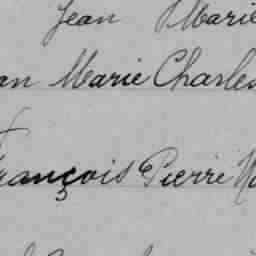 Jean Marie
an Marie Charles
François Pierre